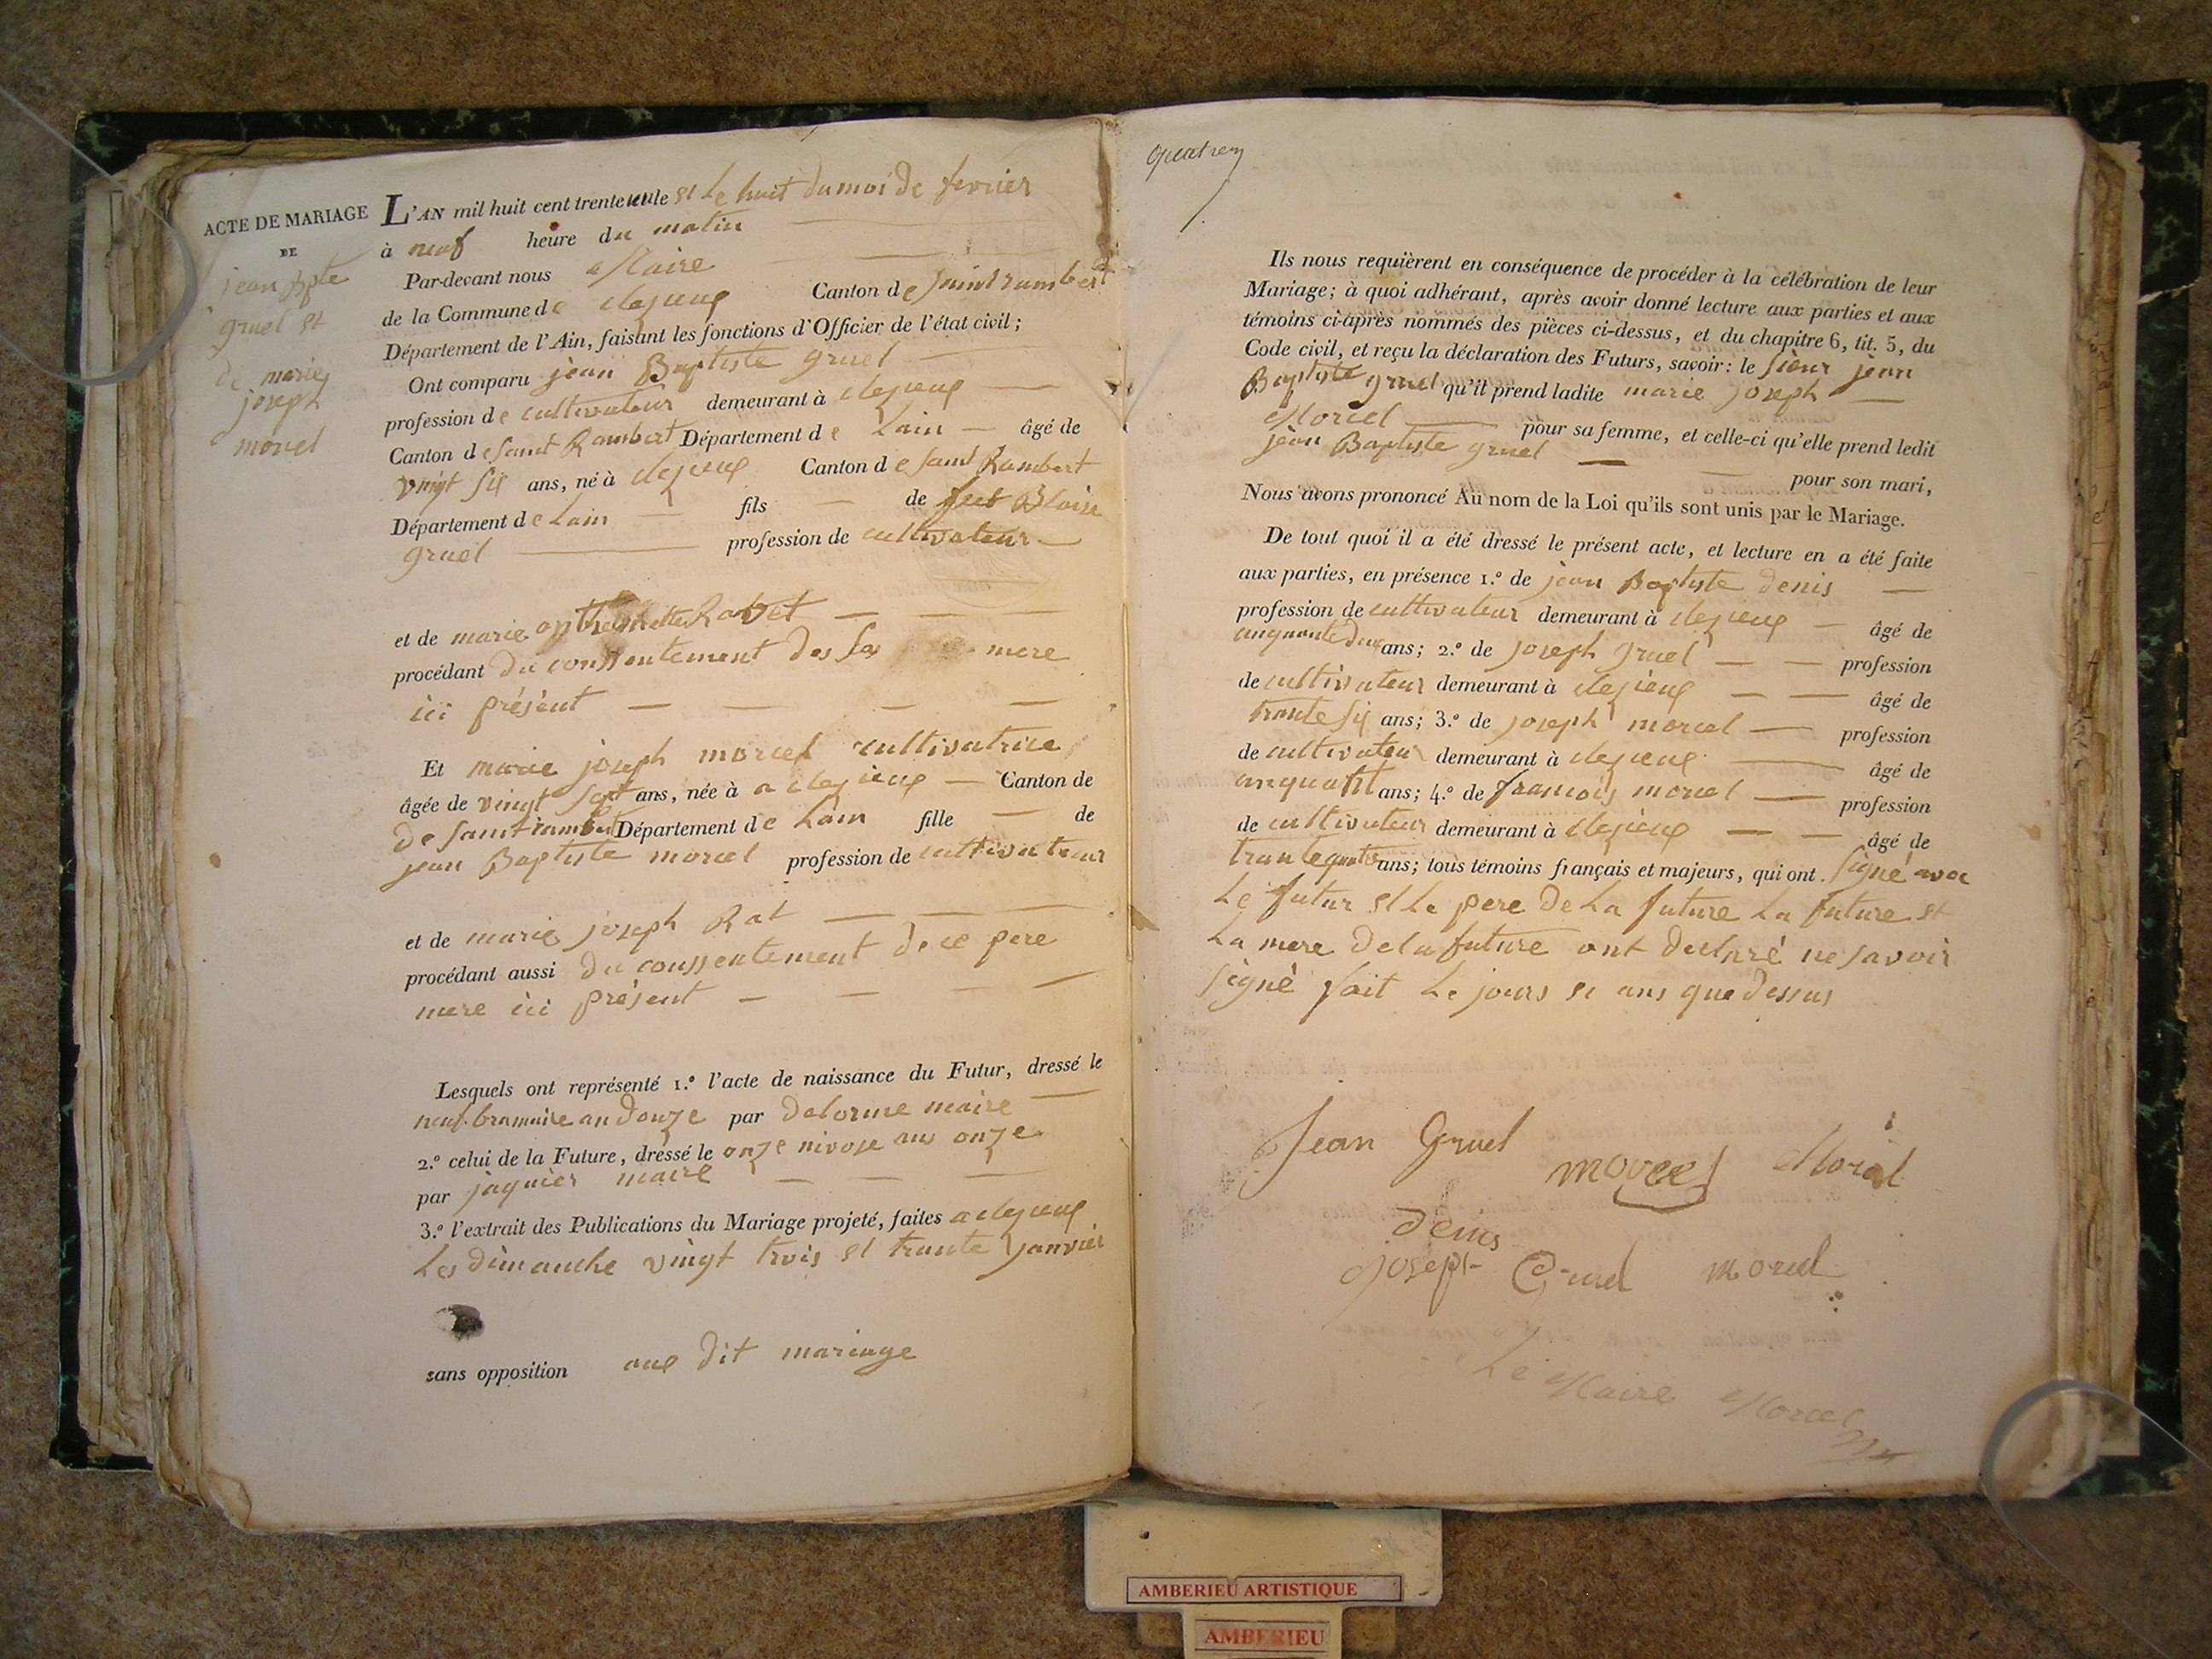 ACTE DE MARIAGE
DE
jean Bpte
gruel et
de marie
joseph
morel
L'AN mil huit cent trente et le huit du moi de fevrier
à neuf heure du matin
Par-devant nous Maire
de la Commune de cleyzieux Canton de Saint rambert
Département de l'Ain, faisant les fonctions d'Officier de l'état civil;
Ont comparu jean Baptiste gruel
profession de cultivateur demeurant à cleyzieux
Canton de saint Rambert Département de Lain âgé de
vingt six ans, né à cleyzieux Canton de saint Rambert
Département de Lain fils de feu Blaise
gruel profession de cultivateur
et de marie
procédant du conssentement des sa mere
ici présent
Et marie joseph morel cultivatrice
âgée de vingt sept ans, née à a cleyzieux Canton de
de saint rambert Département de Lain fille de
jean Baptiste morel profession de cultivateur
et de marie joseph Rat
procédant aussi du conssentement de ce pere
mere ici présent
Lesquels ont représenté 1.º l'acte de naissance du Futur, dressé le
neuf brumaire an douze par delorme maire
2.º celui de la Future, dressé le onze nivose ans onze
par jaquier maire
3.º l'extrait des Publications du Mariage projeté, faites a cleyzieux
Les dimanche vingt trois et trante janvier
sans opposition aux dit mariage
quatre
Ils nous requièrent en conséquence de procéder à la célébration de leur
Mariage; à quoi adhérant, après avoir donné lecture aux parties et aux
témoins ci-après nommés des pièces ci-dessus, et du chapitre 6, tit. 5, du
Code civil, et reçu la déclaration des Futurs, savoir: le sieur jean
Baptiste gruel qu'il prend ladite marie joseph
Morel pour sa femme, et celle-ci qu'elle prend ledit
jean Baptiste gruel pour son mari,
Nous avons prononcé Au nom de la Loi qu'ils sont unis par le Mariage.
De tout quoi il a été dressé le présent acte, et lecture en a été faite
aux parties, en présence 1.º de jean Baptiste denis
profession de cultivateur demeurant à cleyzieux âgé de
cinquante deux ans; 2.º de joseph gruel profession
de cultivateur demeurant à cleyzieux âgé de
trante six ans; 3.º de joseph morel profession
de cultivateur demeurant à cleyzieux âgé de
ans; 4.º de francois morel profession
de cultivateur demeurant à cleyzieux âgé de
trante quatre ans; tous témoins français et majeurs, qui ont signé avec
Le futur et Le pere de La future La future et
La mere de la future ont declaré ne savoir
signé fait Le jours et ans que dessus
Jean Gruel morel Morel
denis
joseph Gruel morel
Le Maire Morel
AMBERIEU ARTISTIQUE
AMBERIEU